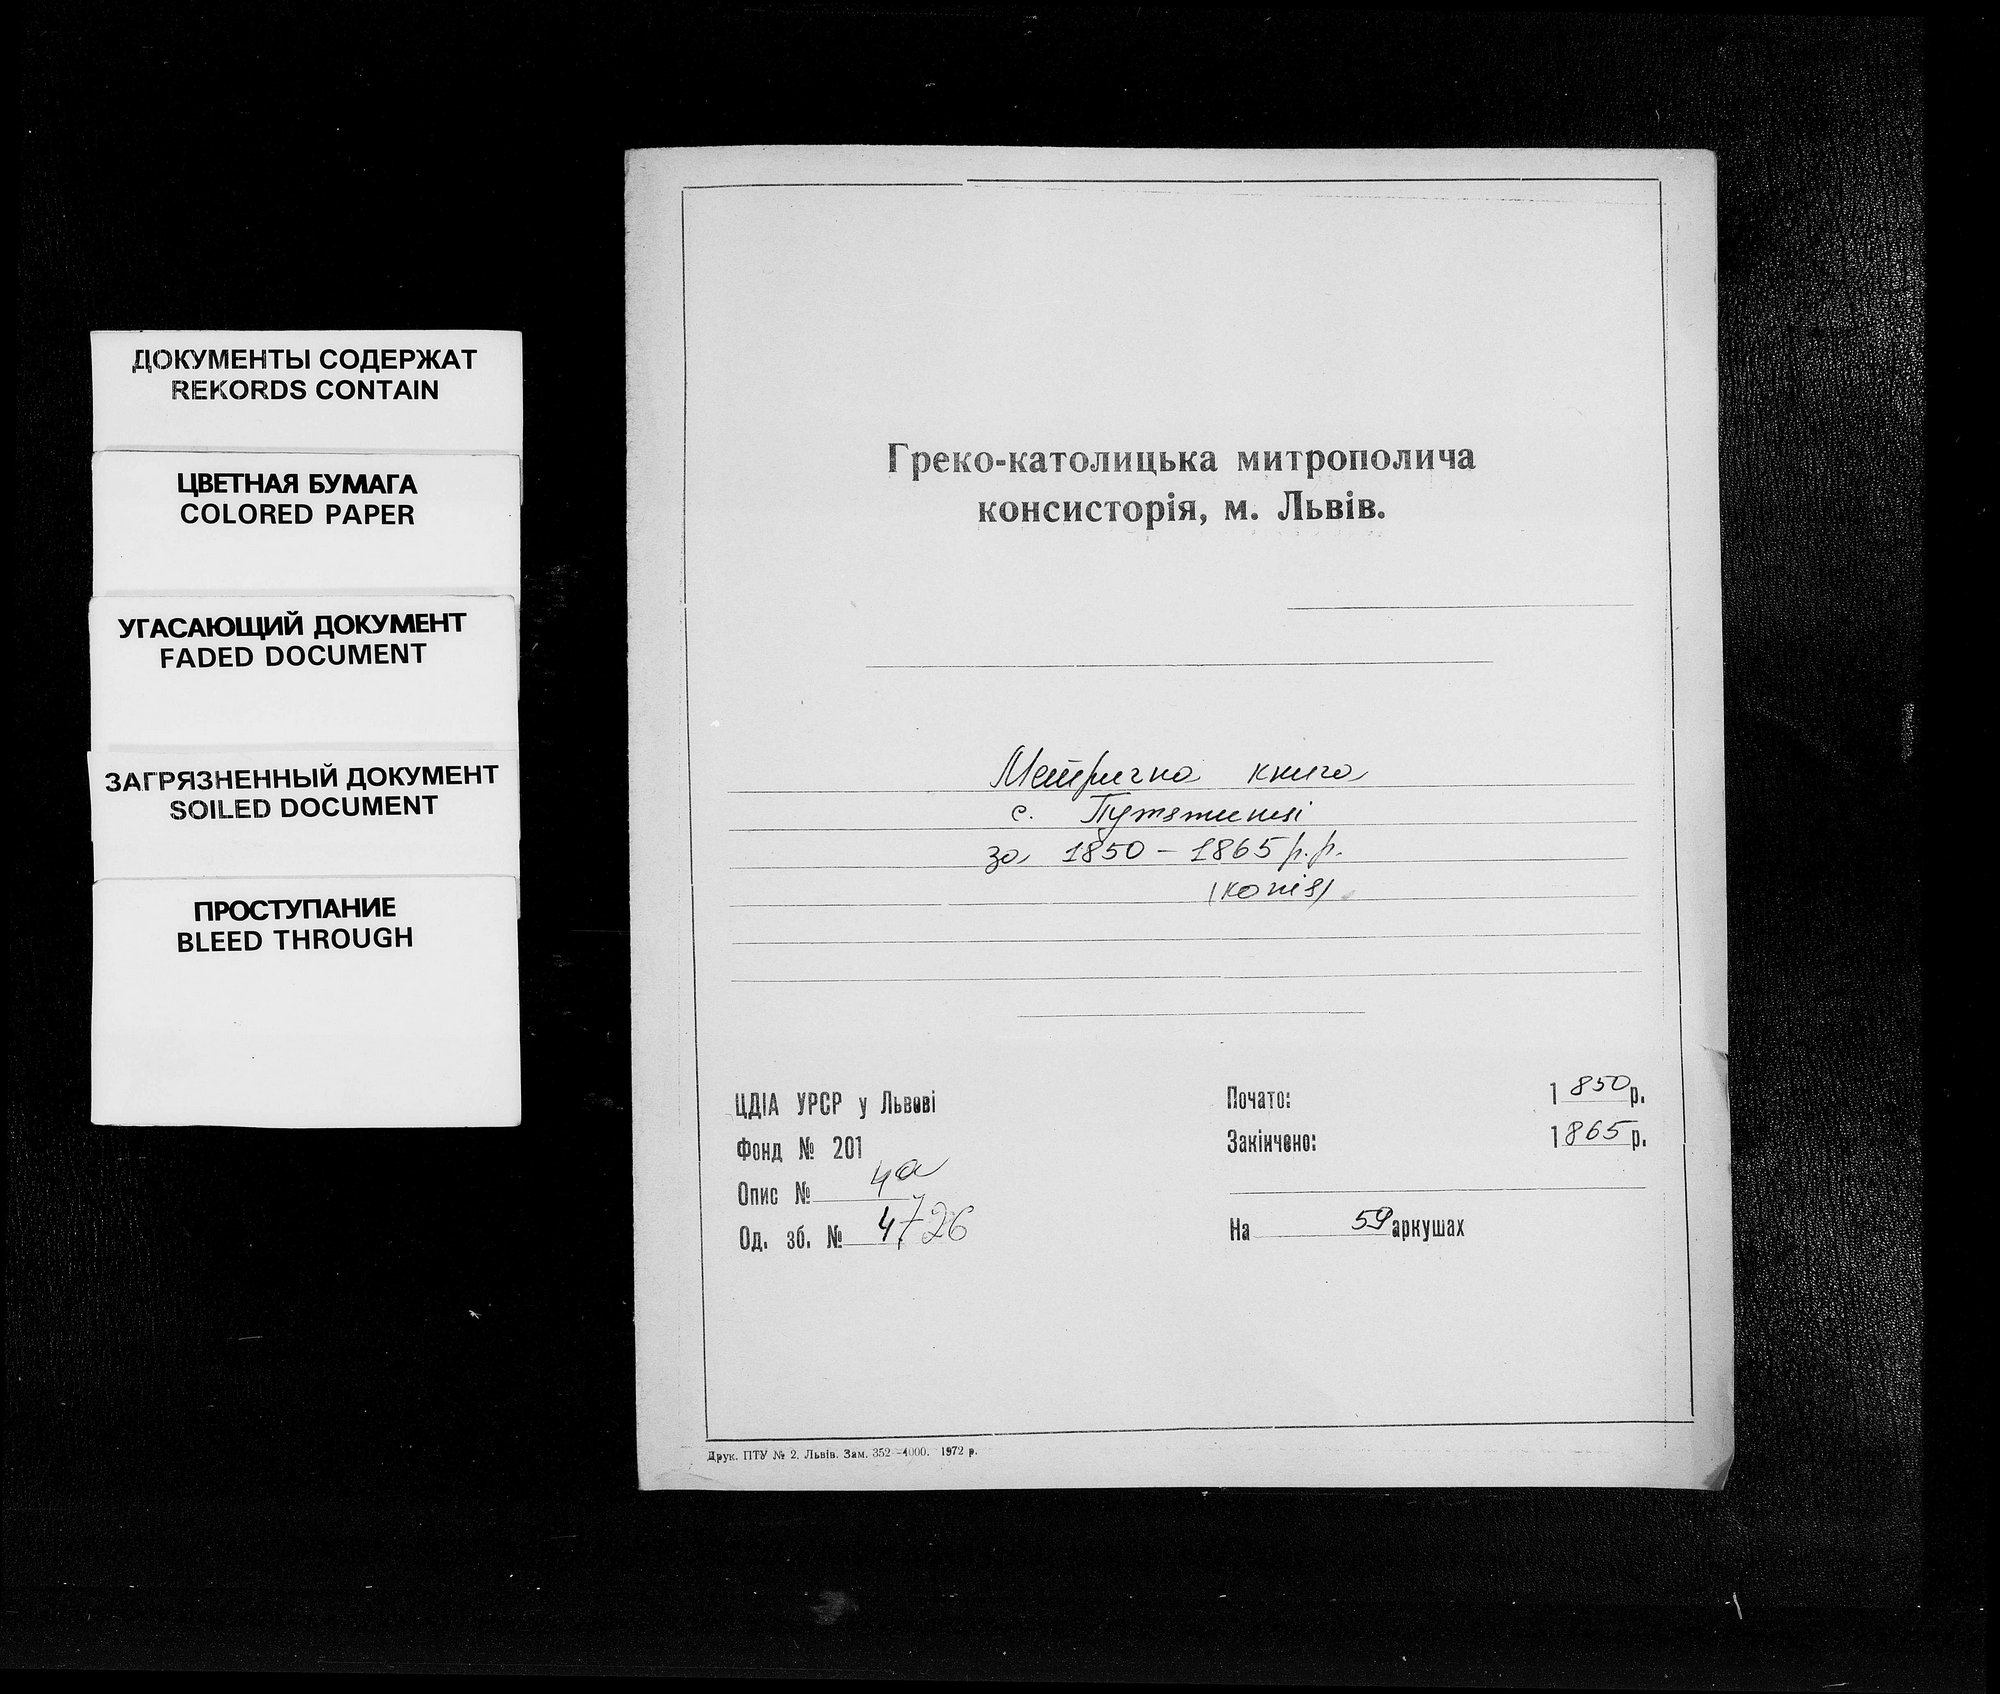 ДОКУМЕНТЫ СОДЕРЖАТ
REKORDS CONTAIN
ЦВЕТНАЯ БУМАГА
COLORED PAPER
УГАСАЮЩИЙ ДОКУМЕНТ
FADED DOCUMENT
ЗАГРЯЗНЕННЫЙ ДОКУМЕНТ
SOILED DOCUMENT
ПРОСТУПАНИЕ
BLEED THROUGH
Греко-католицька митрополича
консисторія, м. Львів.
Метрична книга
с. Путятинці
за 1850 – 1865 р.р.
(копія).
ЦДІА УРСР у Львові
Фонд № 201
Опис № 4а
Од. зб. № 4726
Почато: 1850 р.
Закінчено: 1865 р.
На 59 аркушах
Друк. ПТУ № 2. Львів. Зам. 352—4000. 1972 р.